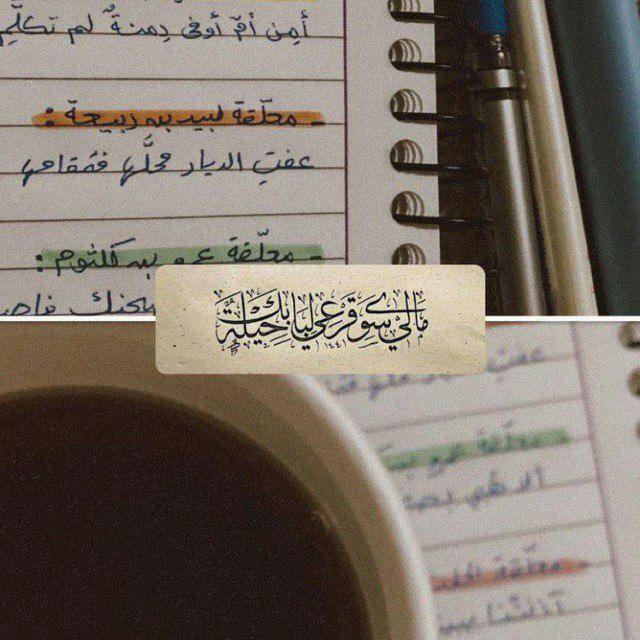 أمِن أمِّ أوفى دِمنةٌ لم تكلّم
- معلّقة لبيد بن ربيعة :
عفتِ الديار محلُّها فمُقامها
- معلّقة عمرو بن كلثوم :
بصحنك فاص
مالي سوى قرعي لبابك حيلة ١٤٤١
عفتِ
معلّقة عمرو بن
ألا هبّي بصح
- معلّقة الحا
آذنتنا ببي